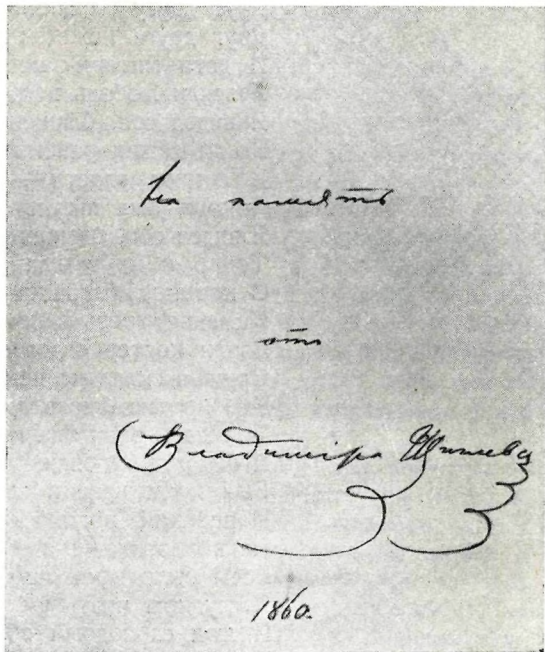 На память
отъ
Владиміра
1860.